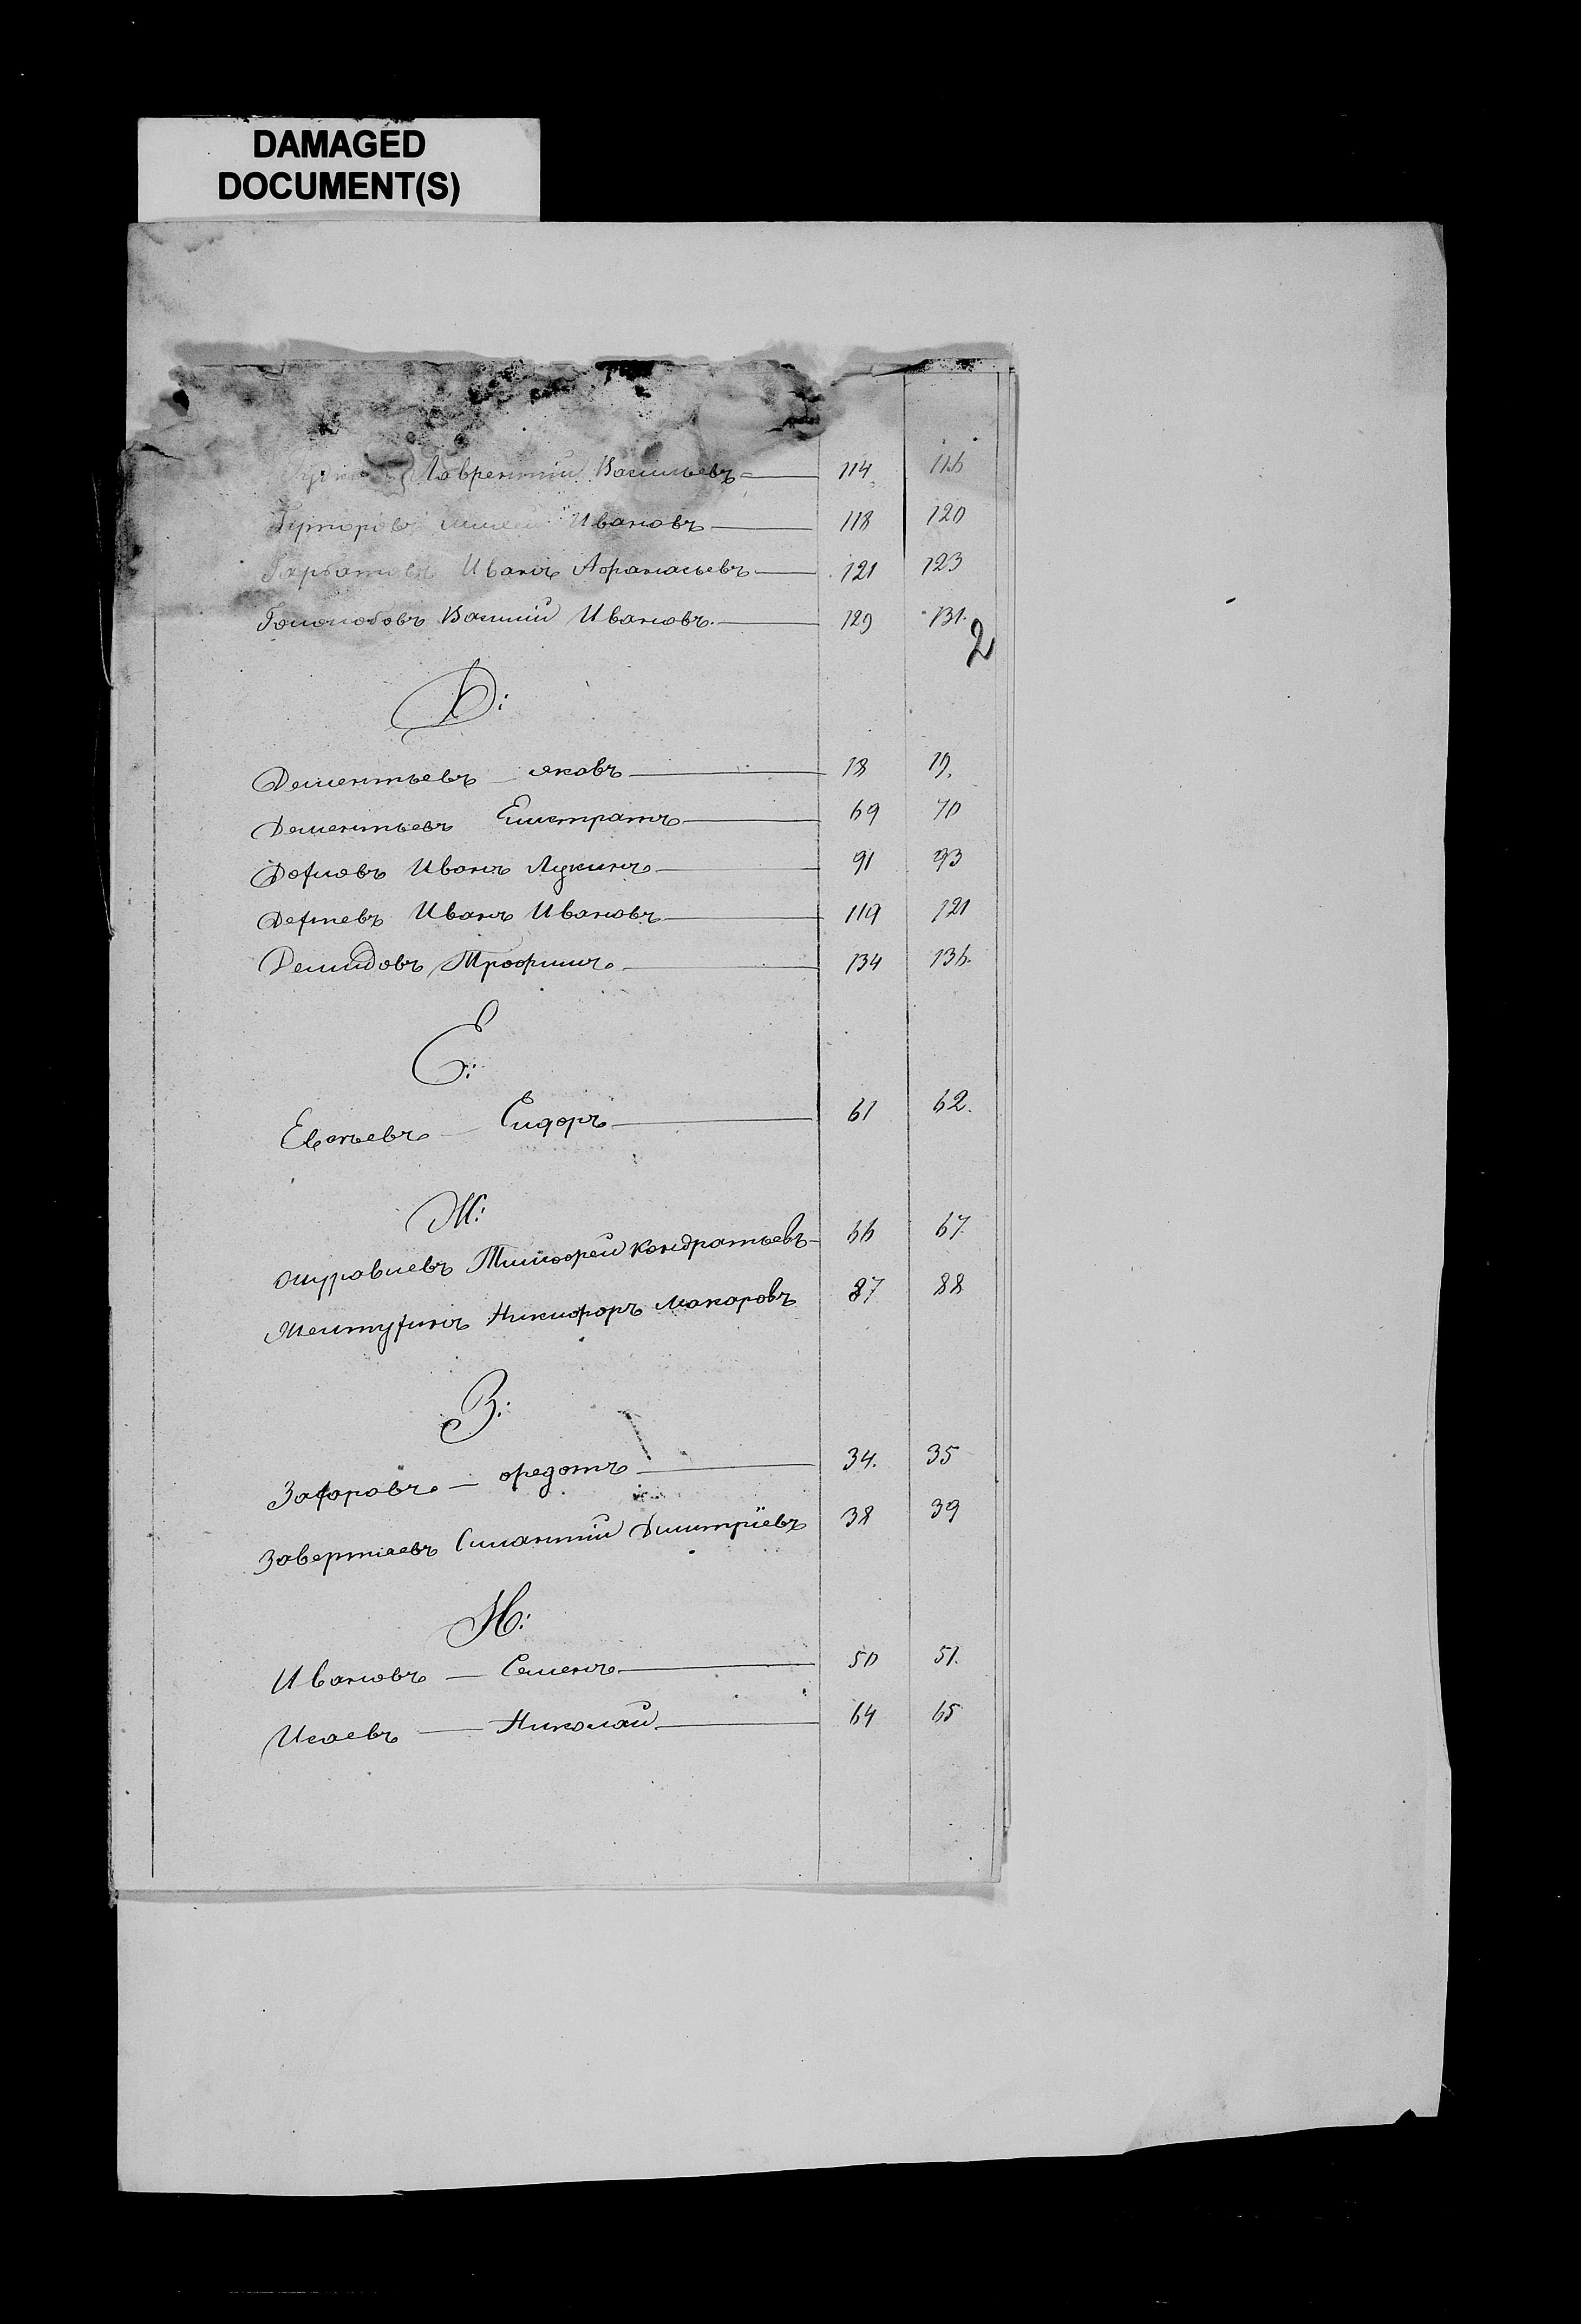 DAMAGED
DOCUMENT(S)
Лаврентий Васильевъ 114 116
Гуторовъ Ивановъ 118 120
Гарбатовъ Иванъ Афанасьевъ 121 123
Гололобовъ Ивановъ. 129 131.
2
Д:
Дементьевъ Яковъ 18 19.
Дементьевъ Елистратъ 69 70
Иванъ Лукинъ 91 93
Иванъ Ивановъ 119 121
Демидовъ Трофимъ 134 136.
Е:
Сидоръ 61 62.
Ж:
Журавлевъ Тимофей Кондратьевъ 66 67.
Никифоръ Макаровъ 87 88
З:
Захаровъ — Федотъ 34. 35
Силантий Дмитріевъ 38 39
И:
Ивановъ — Семенъ 50 51.
Исаевъ — Николай 64 65